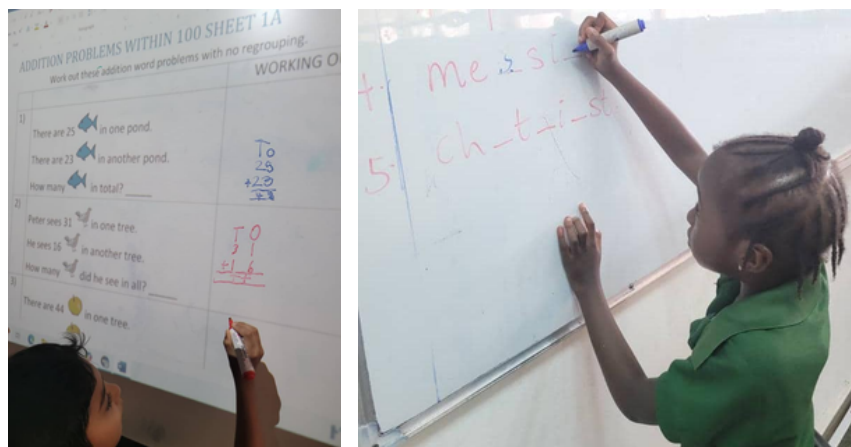 ADDITION PROBLEMS WITHIN 100 SHEET 1A
Work out these addition word problems with no regrouping.
WORKING O
1)
There are 25 in one pond.
There are 23 in another pond.
How many in total? ____
T O
25
+23
2)
Peter sees 31 in one tree.
He sees 16 in another tree.
How many did he see in all? ____
T O
3 1
+1 6
3)
There are 44 in one tree.
4. me s si
5. ch_t_i_st